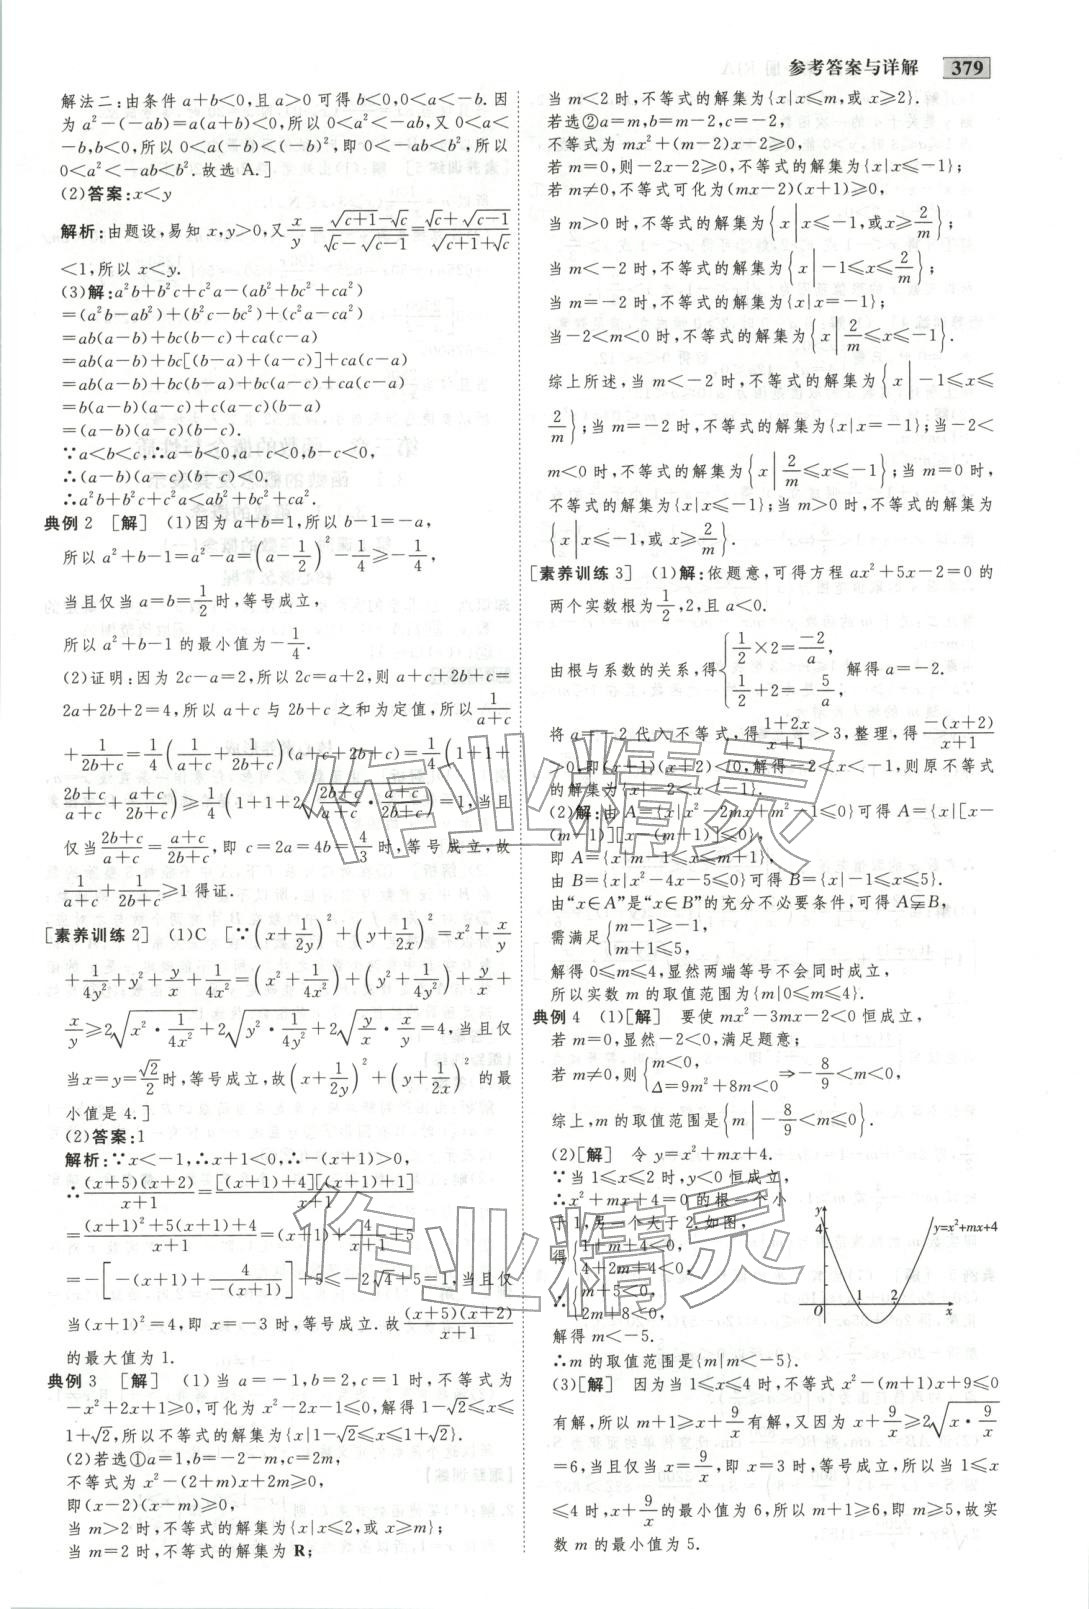 参考答案与详解 379
解法二:由条件 a+b<0,且 a>0 可得 b<0,0<a<-b.因
为 a²-(-ab)=a(a+b)<0,所以 0<a²<-ab,又 0<a<
-b,b<0,所以 0<a(-b)<(-b)²,即 0<-ab<b²,所以
0<a²<-ab<b².故选 A.]
(2)答案:x<y
解析:由题设,易知 x,y>0,又 x/y=(√(c+1)-√c)/(√c-√(c-1))=(√c+√(c-1))/(√(c+1)+√c)
<1,所以 x<y.
(3)解:a²b+b²c+c²a-(ab²+bc²+ca²)
=(a²b-ab²)+(b²c-bc²)+(c²a-ca²)
=ab(a-b)+bc(b-c)+ca(c-a)
=ab(a-b)+bc[(b-a)+(a-c)]+ca(c-a)
=ab(a-b)+bc(b-a)+bc(a-c)+ca(c-a)
=b(a-b)(a-c)+c(a-c)(b-a)
=(a-b)(a-c)(b-c).
∵a<b<c,∴a-b<0,a-c<0,b-c<0,
∴(a-b)(a-c)(b-c)<0.
∴a²b+b²c+c²a<ab²+bc²+ca².
典例 2 [解] (1)因为 a+b=1,所以 b-1=-a,
所以 a²+b-1=a²-a=(a-1/2)²-1/4≥-1/4,
当且仅当 a=b=1/2时,等号成立,
所以 a²+b-1 的最小值为-1/4.
(2)证明:因为 2c-a=2,所以 2c=a+2,则 a+c+2b+c=
2a+2b+2=4,所以 a+c 与 2b+c 之和为定值,所以1/(a+c)
+1/(2b+c)=1/4(1/(a+c)+1/(2b+c))(a+c+2b+c)=1/4(1+1+
(2b+c)/(a+c)+(a+c)/(2b+c))≥1/4(1+1+2√((2b+c)/(a+c)·(a+c)/(2b+c)))=1,当且
仅当(2b+c)/(a+c)=(a+c)/(2b+c),即 c=2a=4b=4/3时,等号成立,故
1/(a+c)+1/(2b+c)≥1 得证.
[素养训练 2] (1)C [∵(x+1/2y)²+(y+1/2x)²=x²+x/y
+1/4y²+y²+y/x+1/4x²=(x²+1/4x²)+(y²+1/4y²)+y/x+
x/y≥2√(x²·1/4x²)+2√(y²·1/4y²)+2√(y/x·x/y)=4,当且仅
当 x=y=√2/2时,等号成立,故(x+1/2y)²+(y+1/2x)²的最
小值是 4.]
(2)答案:1
解析:∵x<-1,∴x+1<0,∴-(x+1)>0,
∴(x+5)(x+2)/(x+1)=[(x+1)+4][(x+1)+1]/(x+1)
=((x+1)²+5(x+1)+4)/(x+1)=(x+1)+4/(x+1)+5
=-[-(x+1)+4/(-(x+1))]+5≤-2√4+5=1,当且仅
当(x+1)²=4,即 x=-3 时,等号成立.故(x+5)(x+2)/(x+1)
的最大值为 1.
典例 3 [解] (1)当 a=-1,b=2,c=1 时,不等式为
-x²+2x+1≥0,可化为 x²-2x-1≤0,解得 1-√2≤x≤
1+√2,所以不等式的解集为{x|1-√2≤x≤1+√2}.
(2)若选①a=1,b=-2-m,c=2m,
不等式为 x²-(2+m)x+2m≥0,
即(x-2)(x-m)≥0,
当 m>2 时,不等式的解集为{x|x≤2,或 x≥m};
当 m=2 时,不等式的解集为 R;
当 m<2 时,不等式的解集为{x|x≤m,或 x≥2}.
若选②a=m,b=m-2,c=-2,
不等式为 mx²+(m-2)x-2≥0,
若 m=0,则-2x-2≥0,不等式的解集为{x|x≤-1};
若 m≠0,不等式可化为(mx-2)(x+1)≥0,
当 m>0 时,不等式的解集为{x|x≤-1,或x≥2/m};
当 m<-2 时,不等式的解集为{x|-1≤x≤2/m};
当 m=-2 时,不等式的解集为{x|x=-1};
当-2<m<0 时,不等式的解集为{x|2/m≤x≤-1}.
综上所述,当 m<-2 时,不等式的解集为{x|-1≤x≤
2/m};当 m=-2 时,不等式的解集为{x|x=-1};当-2<
m<0 时,不等式的解集为{x|2/m≤x≤-1};当 m=0 时,
不等式的解集为{x|x≤-1};当 m>0 时,不等式的解集为
{x|x≤-1,或 x≥2/m}.
[素养训练 3] (1)解:依题意,可得方程 ax²+5x-2=0 的
两个实数根为1/2,2,且 a<0.
由根与系数的关系,得{1/2×2=-2/a, 1/2+2=-5/a, 解得 a=-2.
将 a=-2 代入不等式,得(1+2x)/(x+1)>3,整理,得-(x+2)/(x+1)
>0,即(x+1)(x+2)<0,解得-2<x<-1,则原不等式
的解集为{x|-2<x<-1}.
(2)解:由 A={x|x²-2mx+m²-1≤0}可得 A={x|[x-
(m-1)][x-(m+1)]≤0},
即 A={x|m-1≤x≤m+1},
由 B={x|x²-4x-5≤0}可得 B={x|-1≤x≤5}.
由“x∈A”是“x∈B”的充分不必要条件,可得 A⫋B,
需满足{m-1≥-1, m+1≤5,
解得 0≤m≤4,显然两端等号不会同时成立,
所以实数 m 的取值范围为{m|0≤m≤4}.
典例 4 (1)[解] 要使 mx²-3mx-2<0 恒成立,
若 m=0,显然-2<0,满足题意;
若 m≠0,则{m<0, Δ=9m²+8m<0 ⇒-8/9<m<0,
综上,m 的取值范围是{m|-8/9<m≤0}.
(2)[解] 令 y=x²+mx+4.
∵当 1≤x≤2 时,y<0 恒成立,
∴x²+mx+4=0 的根一个小
于 1,另一个大于 2.如图,
得{1+m+4<0, 4+2m+4<0,
∴{m+5<0, 2m+8<0.
解得 m<-5.
∴m 的取值范围是{m|m<-5}.
y 4 O 1 2 x y=x²+mx+4
(3)[解] 因为当 1≤x≤4 时,不等式 x²-(m+1)x+9≤0
有解,所以 m+1≥x+9/x有解,又因为 x+9/x≥2√(x·9/x)
=6,当且仅当 x=9/x,即 x=3 时,等号成立,所以当 1≤x
≤4 时,x+9/x的最小值为 6,所以 m+1≥6,即 m≥5,故实
数 m 的最小值为 5.
作业精灵
作业精灵